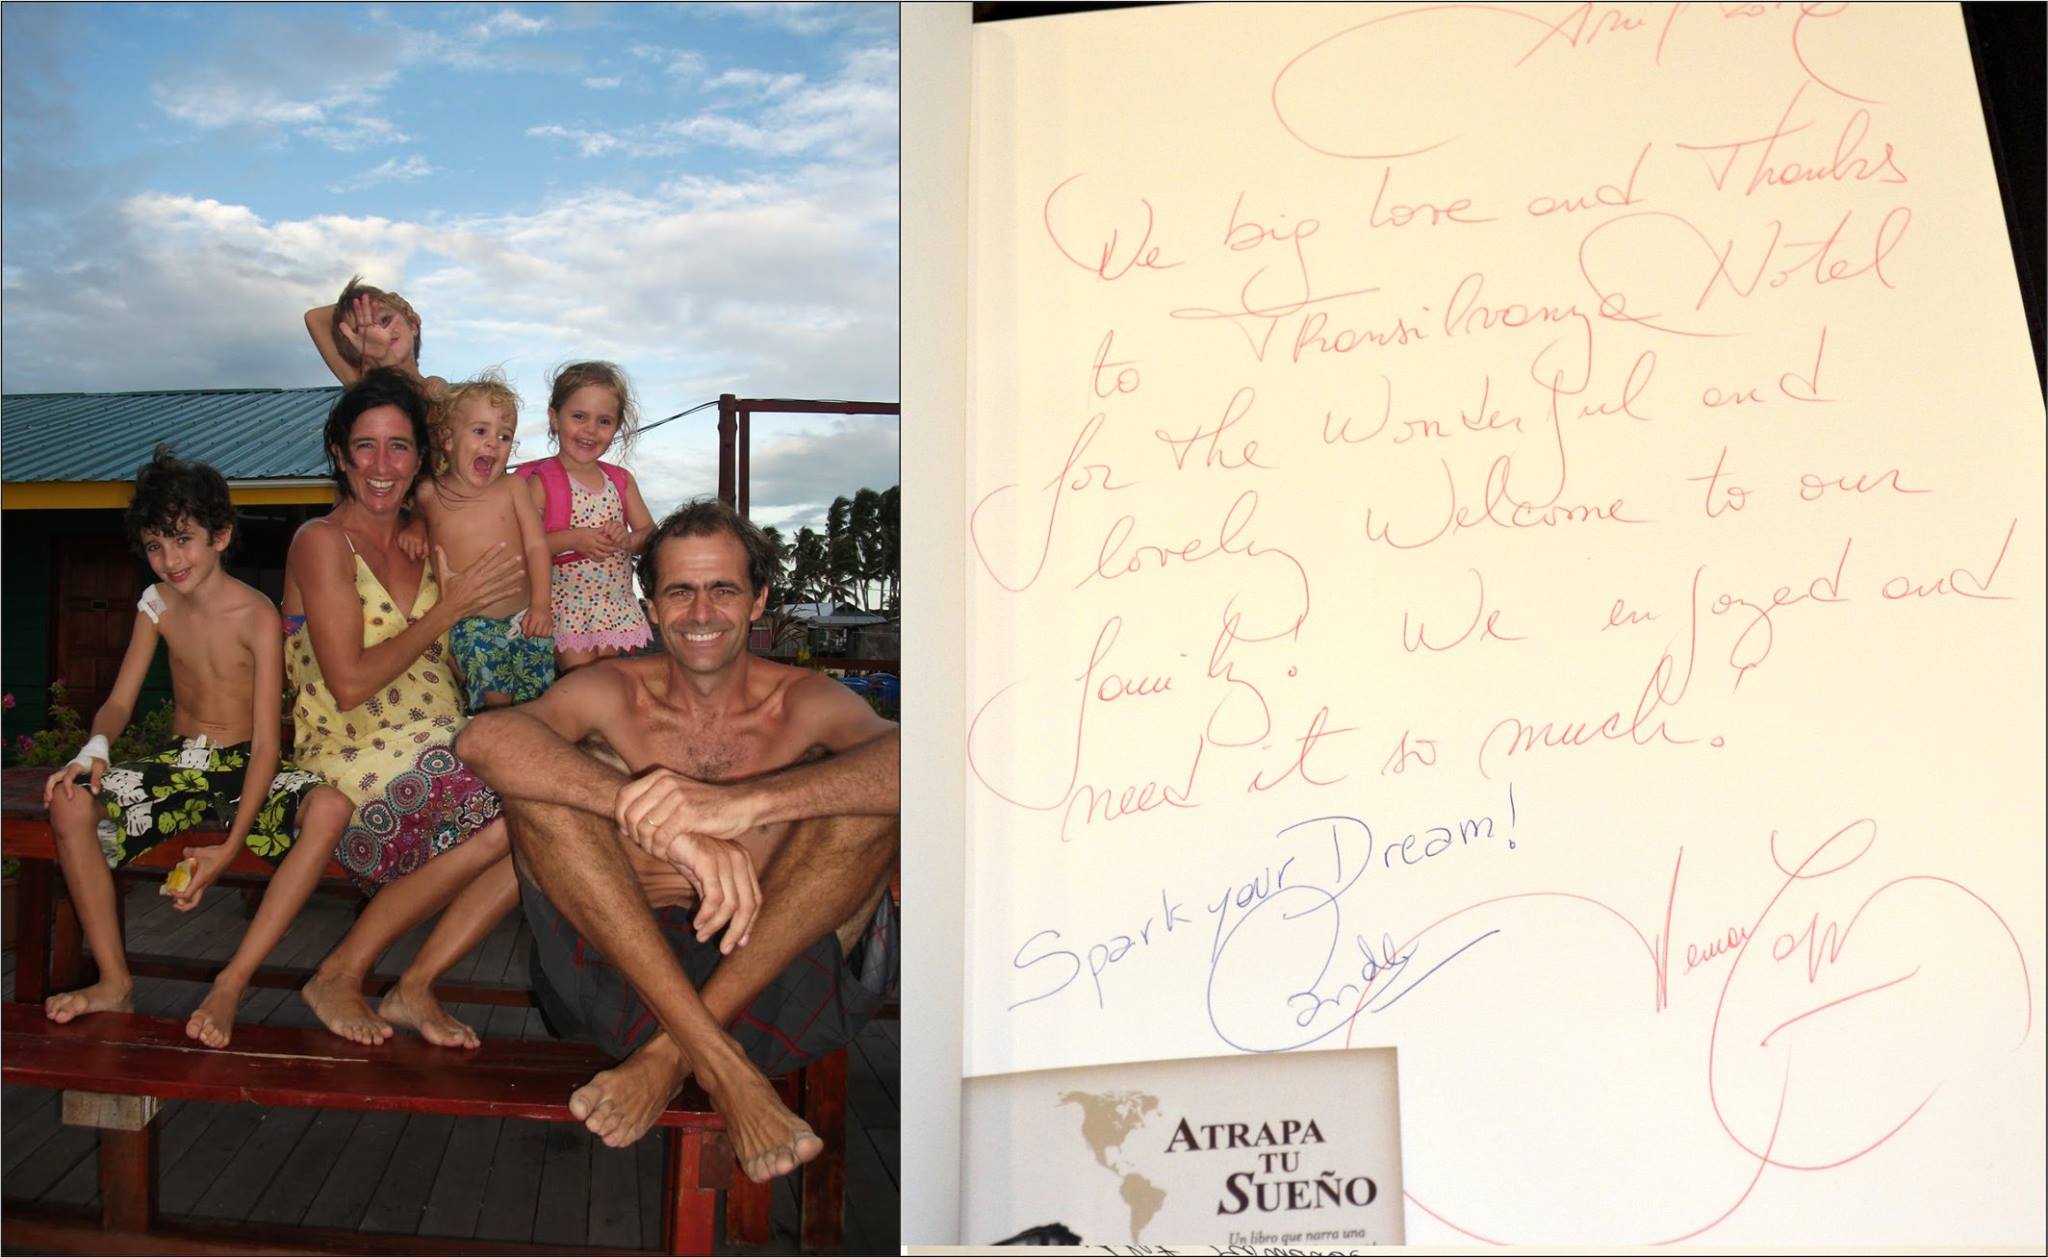 April
We big love and Thanks
to Transilvanya Hotel
for the Wonderful and
lovely Welcome to our
family! We enjoyed and
need it so much!
Spark your Dream!
Cande
Herman
Zapp
ATRAPA
TU
SUEÑO
Un libro que narra una